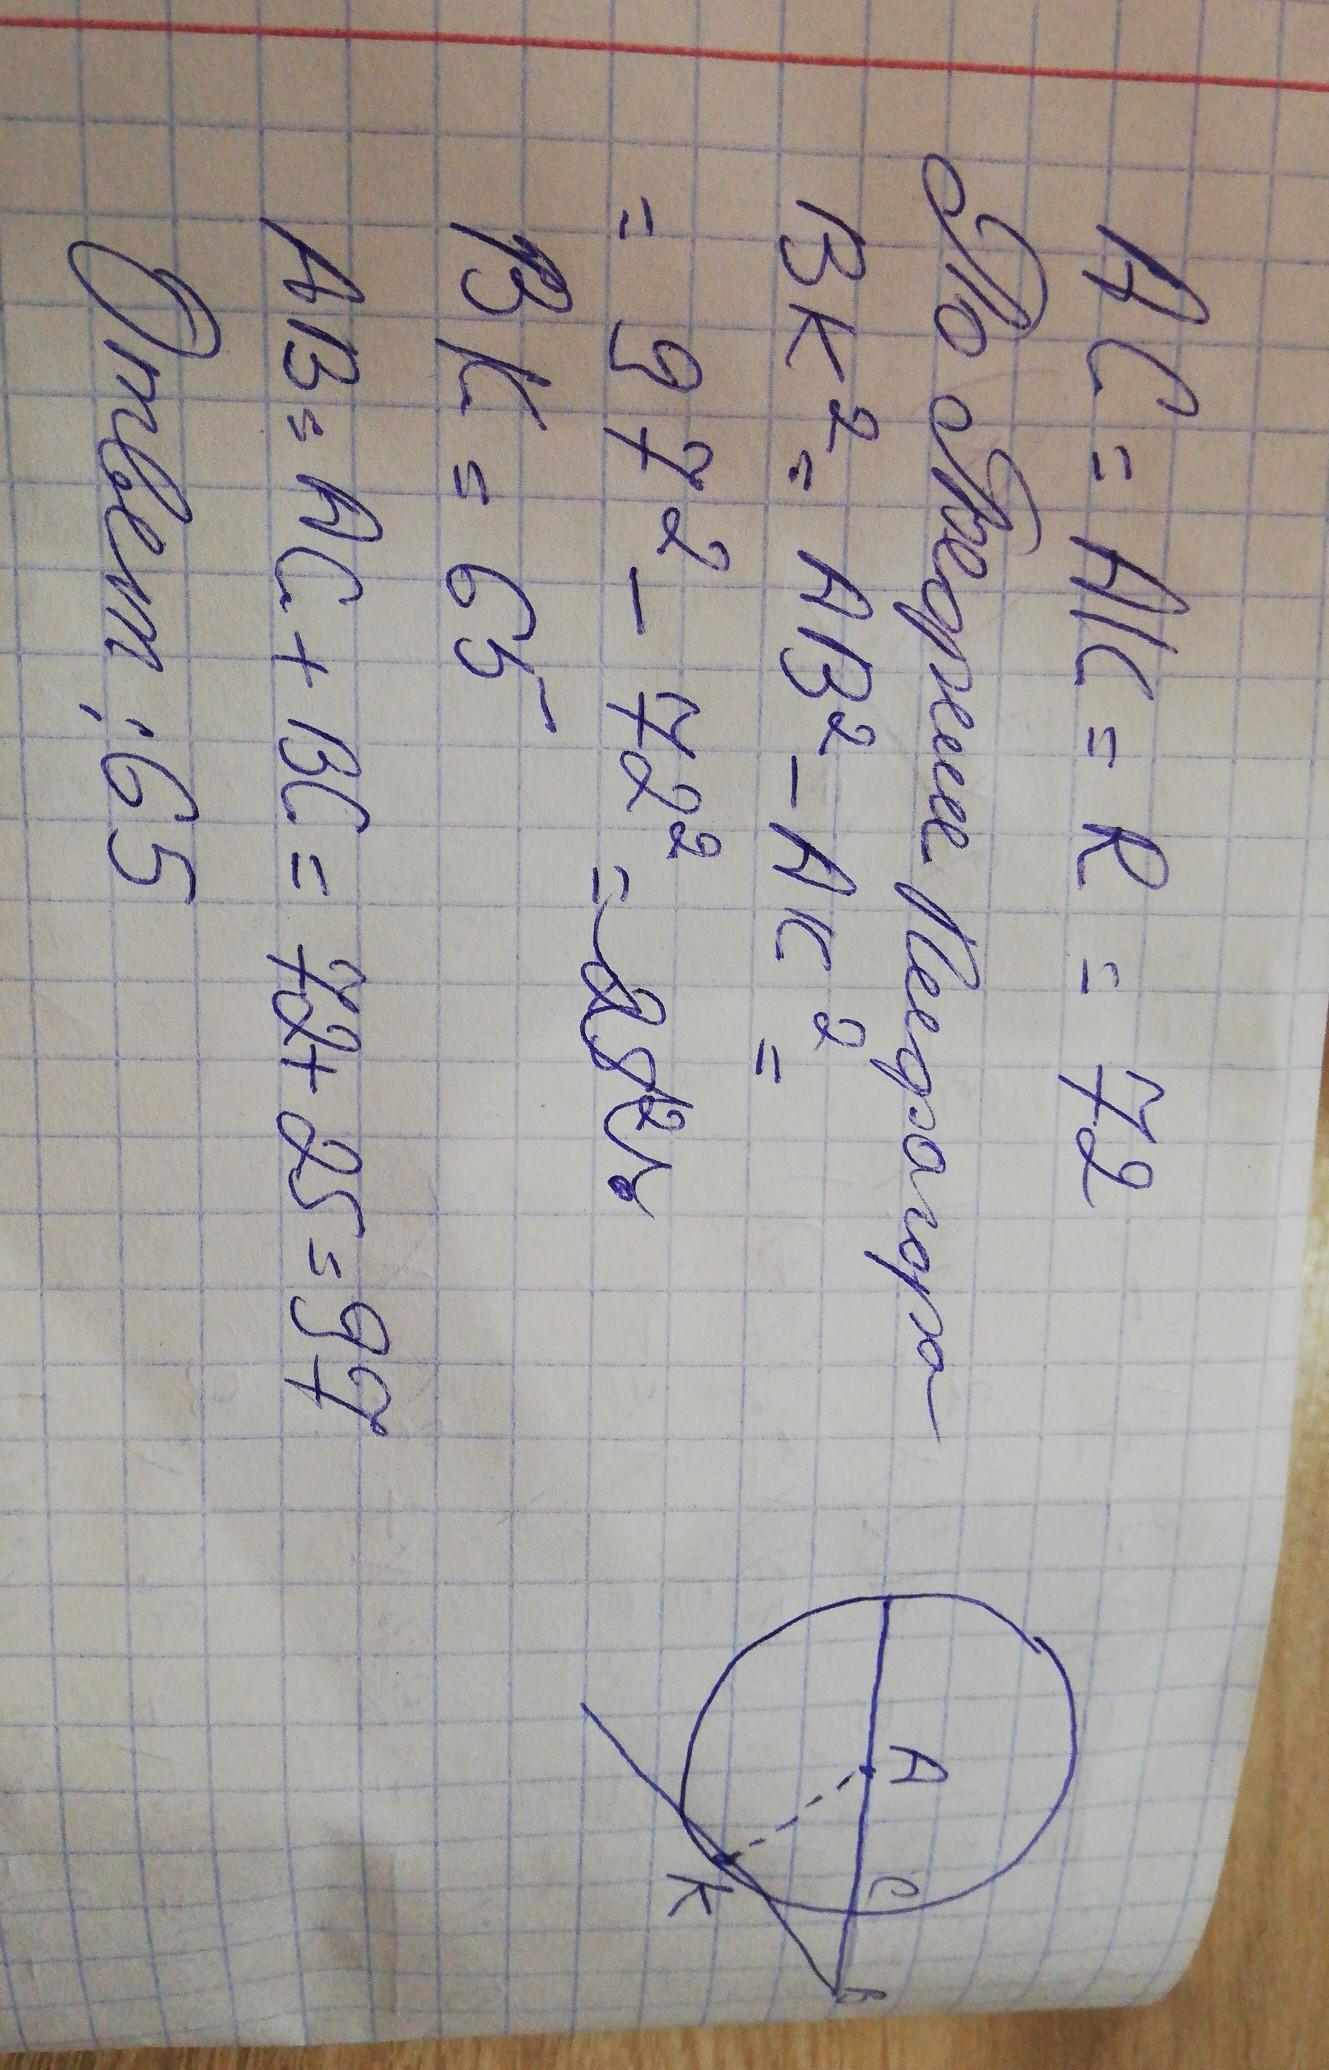 AC = AK = R = 72
По Теореме Пифагора
BK² = AB² - AK² =
= 97² - 72² =
BK = 65
AB = AC + BC = 72 + 25 = 97
Ответ: 65
A
C
K
B